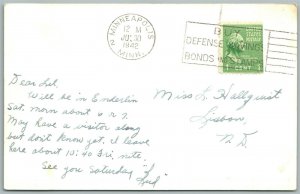 MINNEAPOLIS
2
12 M
JUL 30
1942
MINN.
BUY
DEFENSE SAVINGS
BONDS AND
1 CENT
Dear Lil,
Will be in Enderlin
Sat. morn about 6 or 7.
May have a visitor along
but don't know yet. I leave
here about 10:40 Fri. nite.
See you Saturday
Miss L. Hallquist
Lisbon,
N.D.